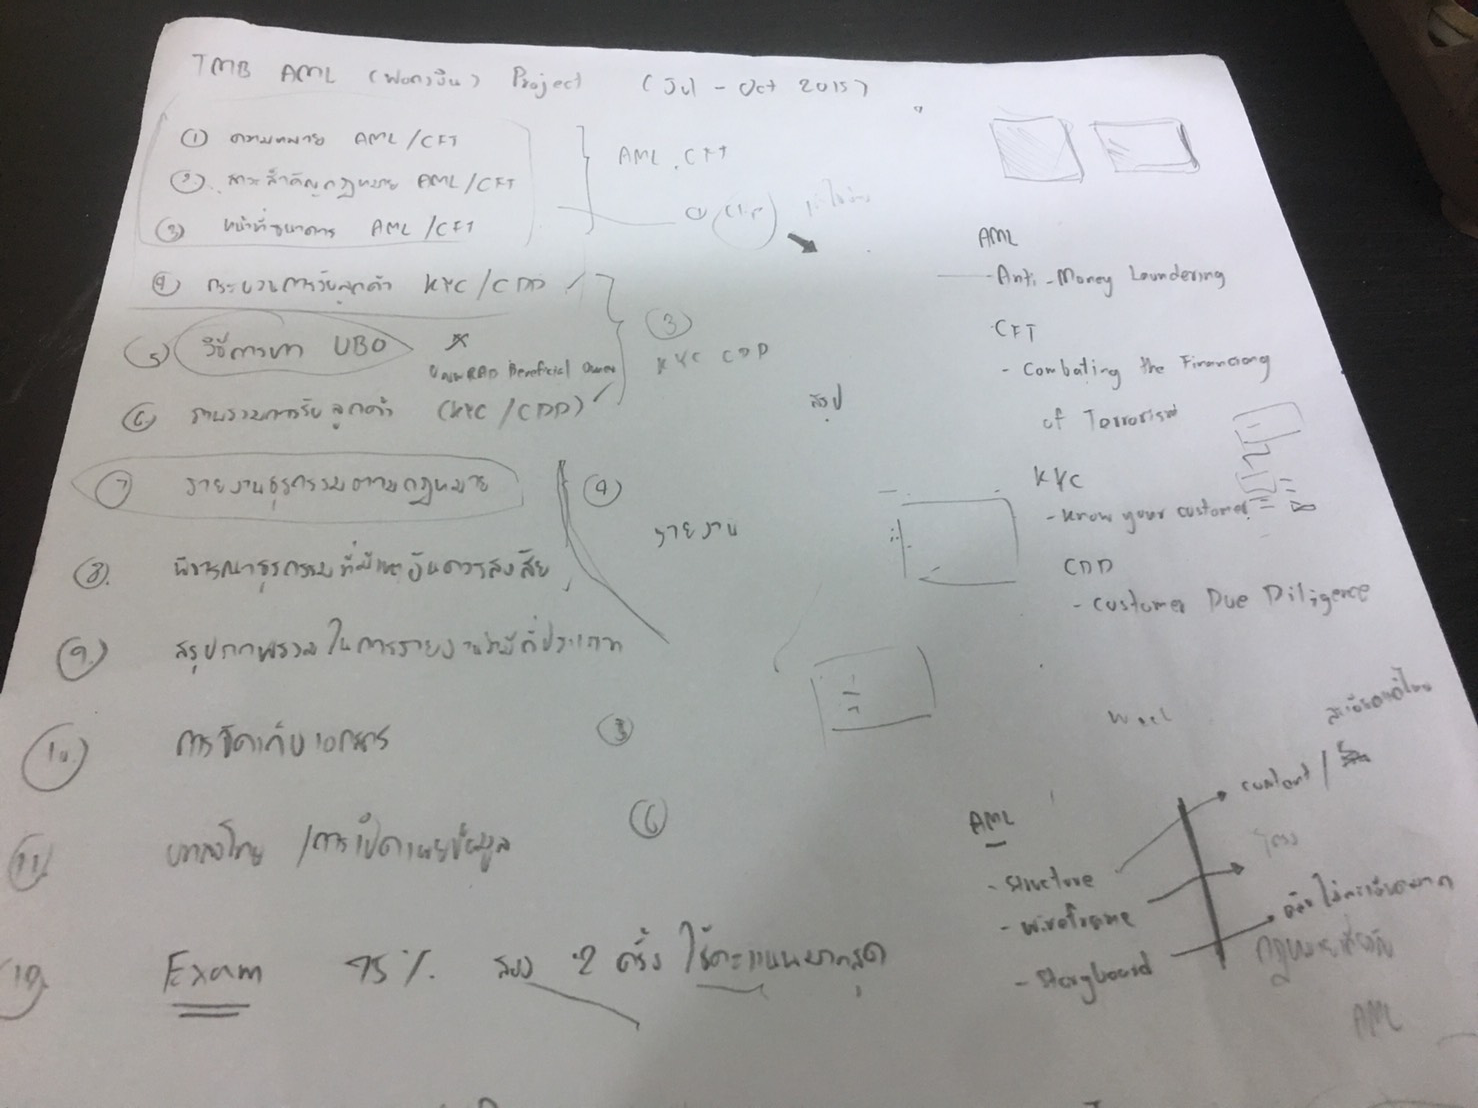 TMB AML (ฟอกเงิน) Project (Jul - Oct 2015)
① ความหมาย AML/CFT
② สาระสำคัญกฎหมาย AML/CFT
③ หน้าที่ธนาคาร AML/CFT
AML, CFT
④ กระบวนการรับลูกค้า KYC/CDD
⑤ วิธีการหา UBO
Beneficial Owner
③
KYC CDD
⑥ การรับลูกค้า (KYC/CDD)
⑦ รายงานธุรกรรมตามกฎหมาย
④
รายงาน
⑧ พิจารณาธุรกรรมที่มีเหตุอันควรสงสัย
⑨ สรุปภาพรวมในการรายงานว่ามีกี่ประเภท
⑩ การจัดเก็บเอกสาร
⑪ บทลงโทษ /การเปิดเผยข้อมูล
⑥
Exam 75% สอบ 2 ครั้ง ใช้คะแนนมากสุด
สรุป
AML
- Anti-Money Laundering
CFT
- Combating the Financiong
of Terrorism
KYC
- Know your customer
CDD
- Customer Due Diligence
AML
- Structure
- wireframe
- Storyboard
content /
AML